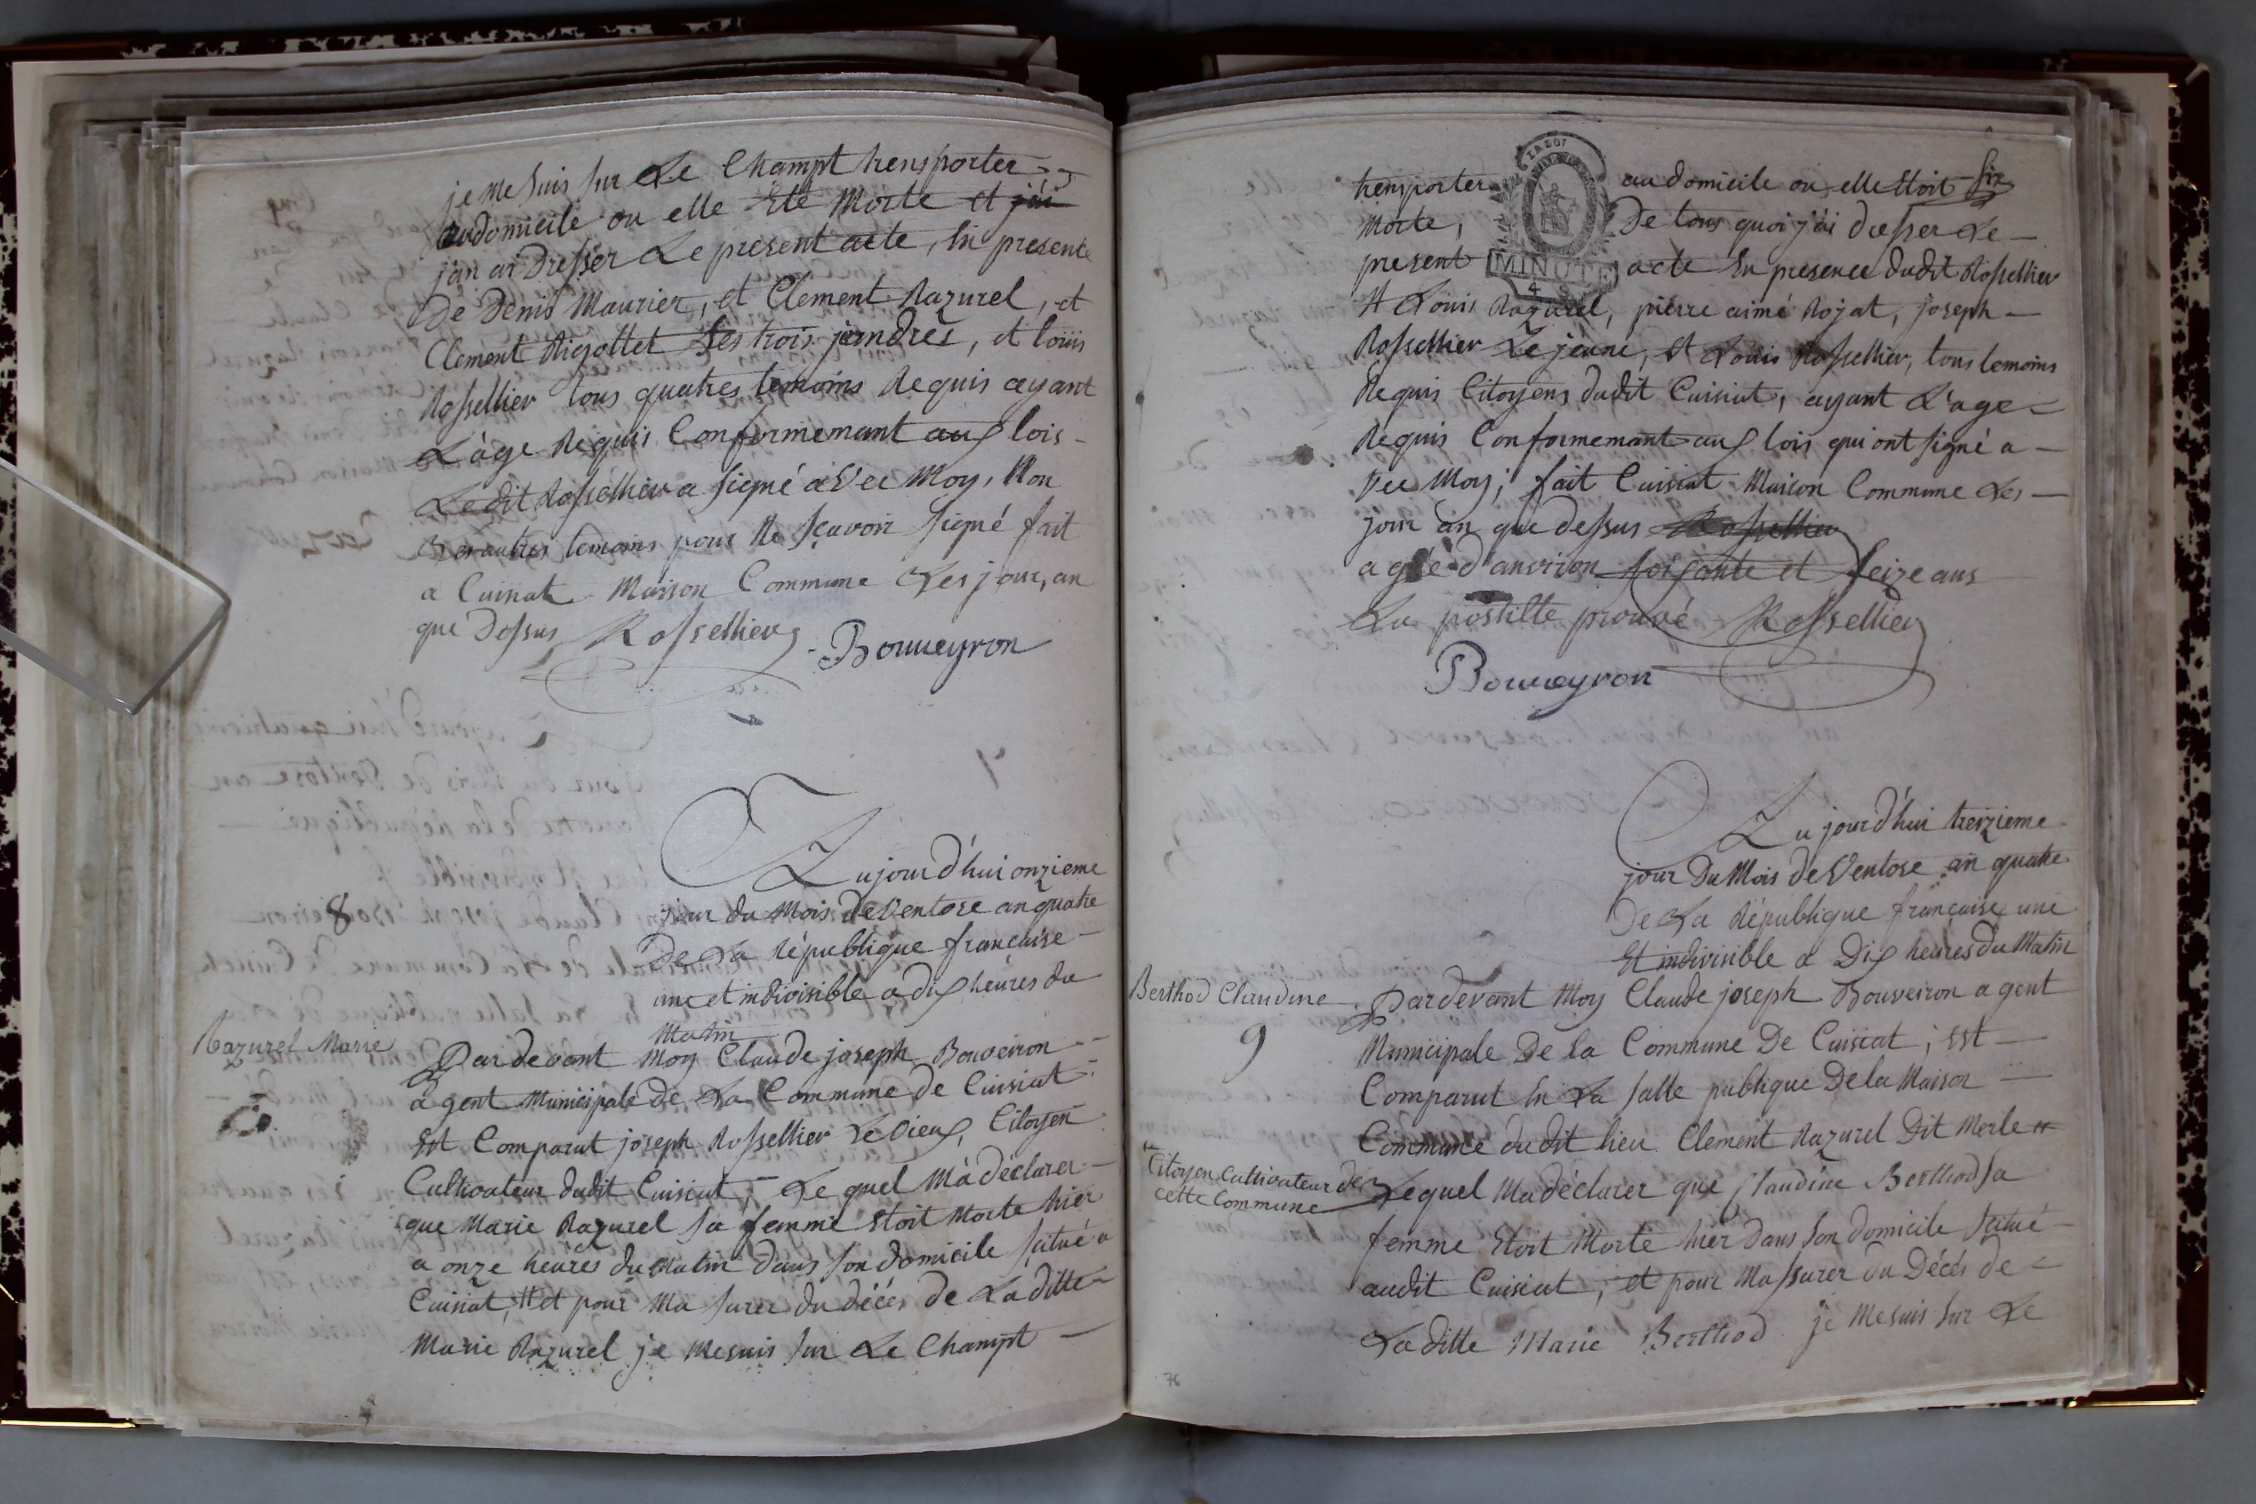 je me suis sur Le Champt trensporter
audomicile ou elle Eté Morte et j'ai
j'an ai Dresser Le present acte, En presence
De Denis Maurier, et Clement Razurel, et
Clement Rigottet Les trois jendres, et louis
Rossellier tous quatres temoins Requis ayant
L'àge Requis Conformemant aux lois
Le dit Rossellier a signé avec Moy, Non
Les autres temoins pour Ne sçavoir signé fait
a Cuisiat Maison Commune Les jour, an
que Dessus Rossellier
Bouveyron
Aujourd'hui onzieme
jour du Mois de Ventose an quatre
8
De La République française
une et indivisible a dix heures du
Matin
Razurel Marie
Pardevant Moy Claude joseph Bouveiron
agent Municipale de La Commune de Cuisiat
Est Comparut joseph Rossellier Le vieux, Citoyen
Cultivateur dudit Cuisiat, Le quel M'a déclarer
que Marie Razurel sa femme Etoit Morte hier
a onze heures du Matin dans son domicile scitué a
Cuisiat, et pour Ma surer du décés de La ditte
Marie Razurel je Me suis sur Le Champt
trensporter au domicile ou elle Etoit
Morte, De tous quoi j'ai dresser Le
present acte En presence dudit Rossellier
MINUTE
4 S
et Louis Razurel, pierre aimé Rojat, joseph
Rossellier Le jeune, et Louis Rossellier, tous temoins
Requis Citoyens dudit Cuisiat, ayant L'age
Requis Conformemant aux lois qui ont signé a
vec Moy; fait Cuisiat Maison Commune Les
jour an que dessus Rossellier
agée d'anviron soisante et seize ans
La postille prouvé Rossellier
Bouveyron
Aujourd'hui treizieme
jour Du Mois de Ventose an quatre
De La République française une
Et indivisible a Dix heures du Matin
Berthod Claudine
9
Pardevant Moy Claude joseph Bouveiron agent
Municipale De la Commune De Cuisiat, Est
Comparut En La salle publique De la Maison
Commune dudit lieu Clement Razurel Dit Merle
Citoyen Cultivateur de
cette Commune
Lequel Ma déclarer que Claudine Berthod sa
femme Etoit Morte hier dans son domicile scitué
audit Cuisiat, et pour Massurer du Décés de
La ditte Marie Berthod je Me suis sur Le
76